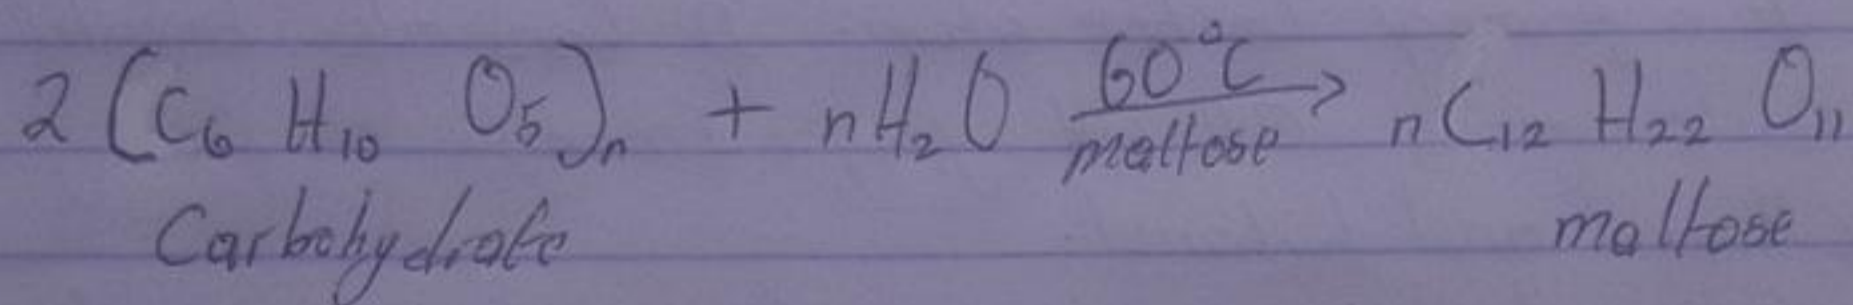 2(C₆H₁₀O₅)ₙ + nH₂O 60°C maltose → nC₁₂H₂₂O₁₁
Carbohydrate maltose